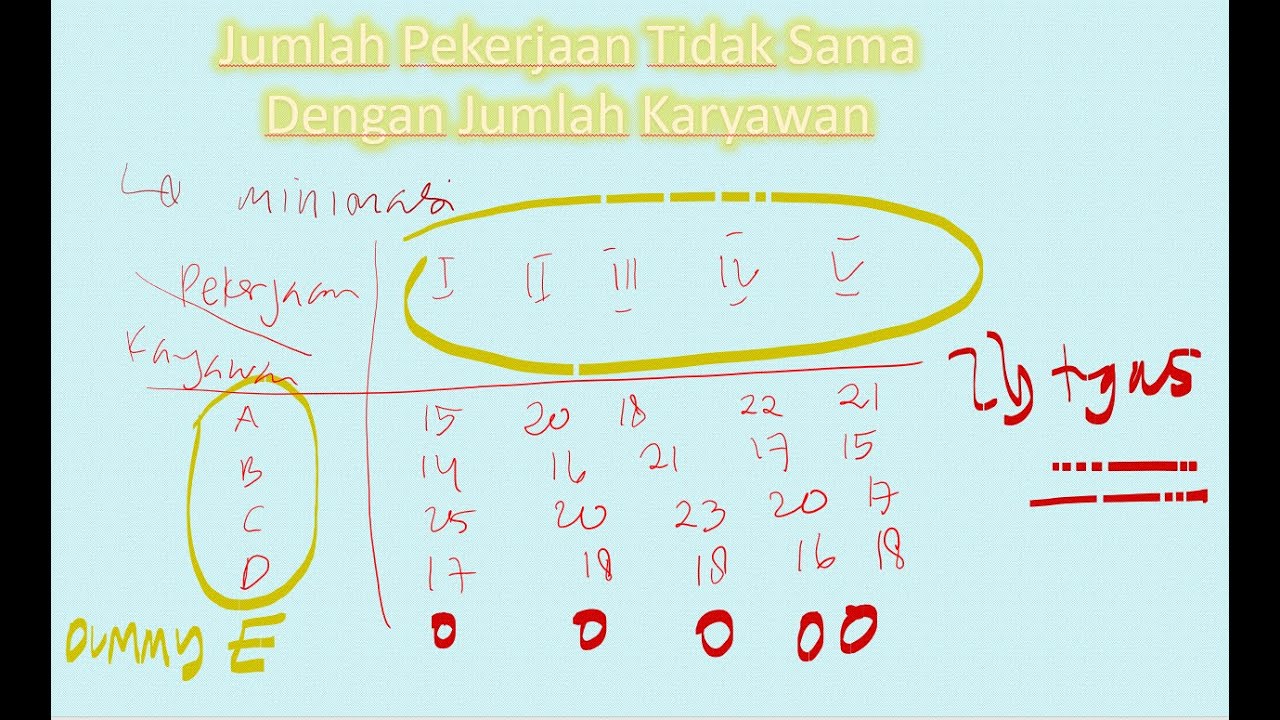 Jumlah Pekerjaan Tidak Sama
Dengan Jumlah Karyawan
minimasi
Pekerjaan I II III IV V
Kayawan
A 15 20 18 22 21
B 14 16 21 17 15
C 25 20 23 20 17
D 17 18 18 16 18
DUMMY E 0 0 0 0 0
tgas